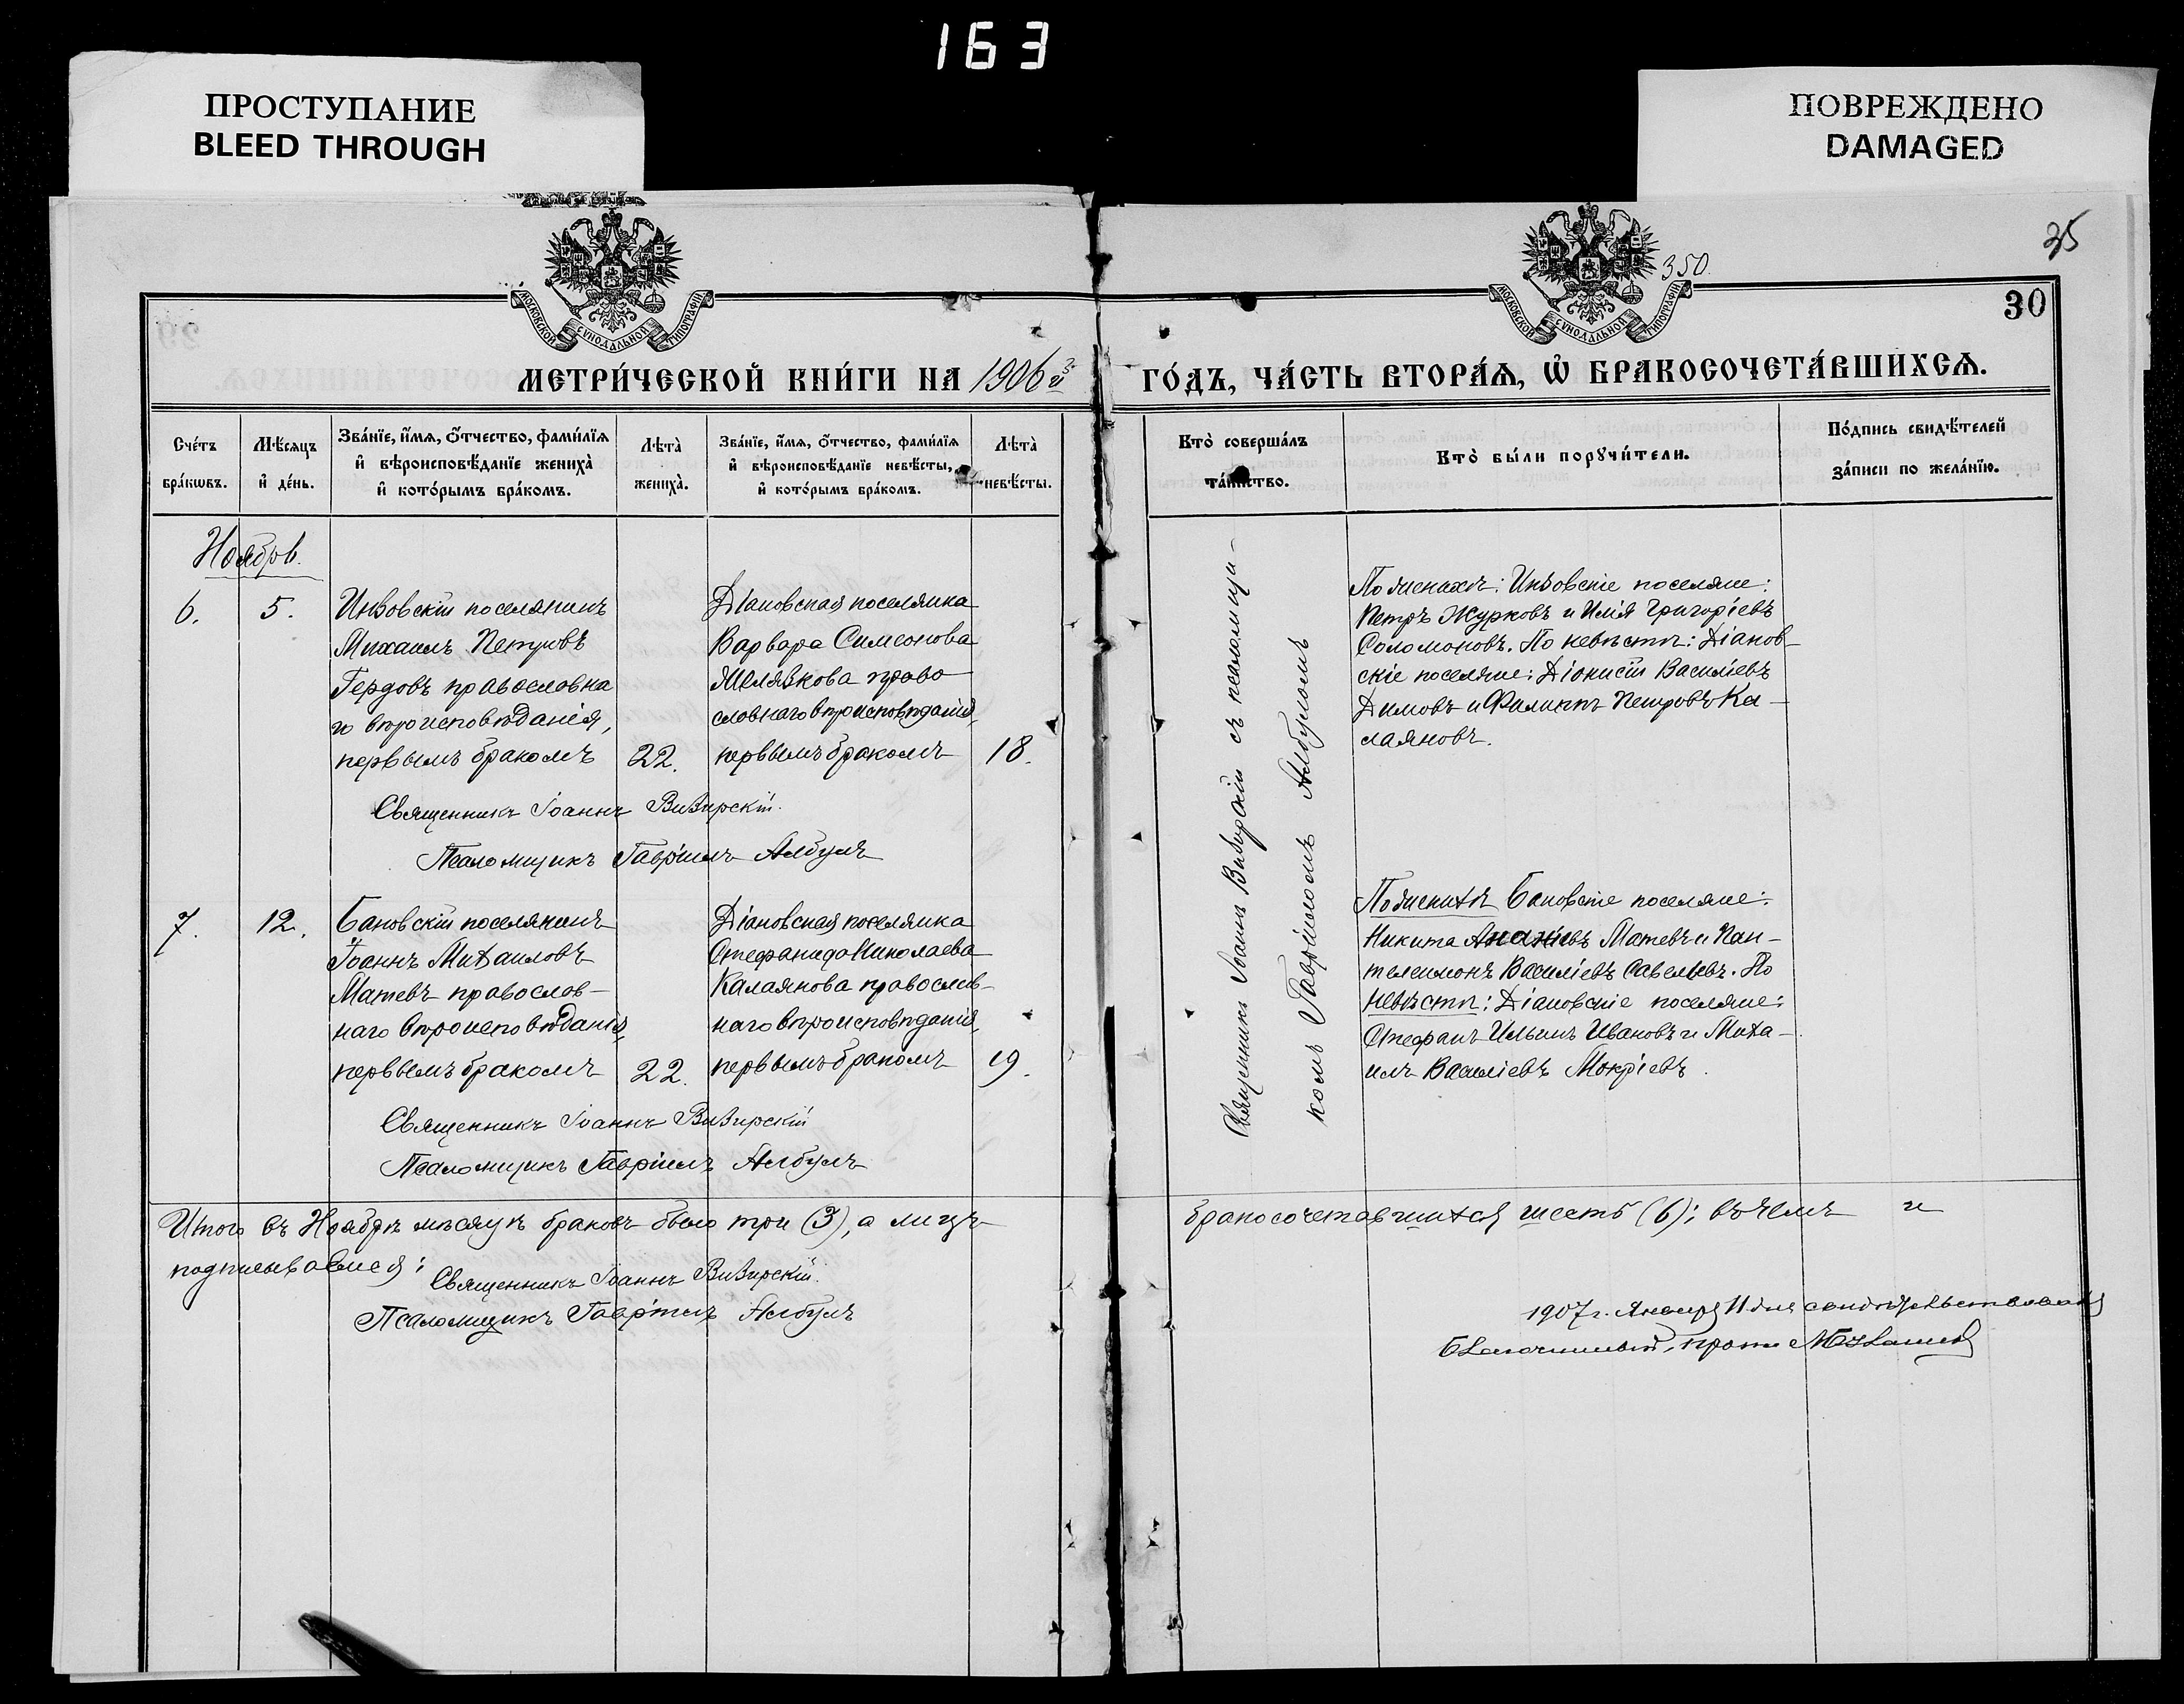 163
ПРОСТУПАНИЕ
BLEED THROUGH
ПОВРЕЖДЕНО
DAMAGED
35
350.
30
МОСКОВСКОЙ СУНОДАЛЬНОЙ ТИПОГРАФІИ
МОСКОВСКОЙ СУНОДАЛЬНОЙ ТИПОГРАФІИ
МЕТРИ́ЧЕСКОЙ КНИ́ГИ НА 1906й
ГО́ДЪ, ЧА́СТЬ ВТОРА́Ѧ, Ѡ҆ БРАКОСОЧЕТА́ВШИХСѦ.
Сче́тъ бра́кѡвъ.
Мѣ́сяцъ и҆ де́нь.
Зва́нїе, и҆́мѧ, ѻ҆́тчество, фами́лїѧ и҆ вѣроисповѣ́данїе жениха̀ и҆ кото́рымъ бра́комъ.
Лѣта̀ жениха̀.
Зва́нїе, и҆́мѧ, ѻ҆́тчество, фами́лїѧ и҆ вѣроисповѣ́данїе невѣ́сты, и҆ кото́рымъ бра́комъ.
Лѣта̀ невѣ́сты.
Кто̀ соверша́лъ та́инство.
Кто̀ бы́ли порꙋчи́тели.
По́дпись свидѣ́телей за́писи по жела́нїю.
Ноябрь.
6.
5.
Инзовскій поселянинъ
Михаилъ Петровъ
Гердовъ православна
го вѣроисповѣданія,
первымъ бракомъ
22.
Діановская поселянка
Варвара Симеонова
Желязкова право
славнаго вѣроисповѣданія,
первымъ бракомъ
18.
Священникъ Іоаннъ Визирскій.
Псаломщикъ Гавріилъ Албулъ
Священникъ Іоаннъ Визирскій съ псаломщи-
комъ Гавріиломъ Албуломъ
По женихѣ: Инзовскіе поселяне:
Петръ Журковъ и Илія Григоріевъ
Соломоновъ. По невѣстѣ: Діанов-
скіе поселяне: Діонисій Василіевъ
Димовъ и Филиппъ Петровъ Ка-
лаяновъ.
7.
12.
Бановскій поселянинъ
Іоаннъ Михаиловъ
Матевъ православ-
наго вѣроисповѣданія,
первымъ бракомъ
22.
Діановская поселянка
Стефанида Николаева
Калаянова православ-
наго вѣроисповѣданія,
первымъ бракомъ
19.
По женихѣ Бановскіе поселяне:
Никита Ананіевъ Матевъ и Пан-
телеимонъ Василіевъ Савельевъ. По
невѣстѣ: Діановскіе поселяне:
Стефанъ Ильинъ Ивановъ и Миха-
илъ Василіевъ Мокріевъ.
Священникъ Іоаннъ Визирскій
Псаломщикъ Гавріилъ Албулъ
Итого въ Ноябрѣ мѣсяцѣ браковъ было три (3), а лицъ
бракосочетавшихся шесть (6); въ чемъ и
подписываемся:
Священникъ Іоаннъ Визирскій.
Псаломщикъ Гавріилъ Албулъ
1907 г. Января 11 дня свидѣтельствовалъ
Благочинный, прот.